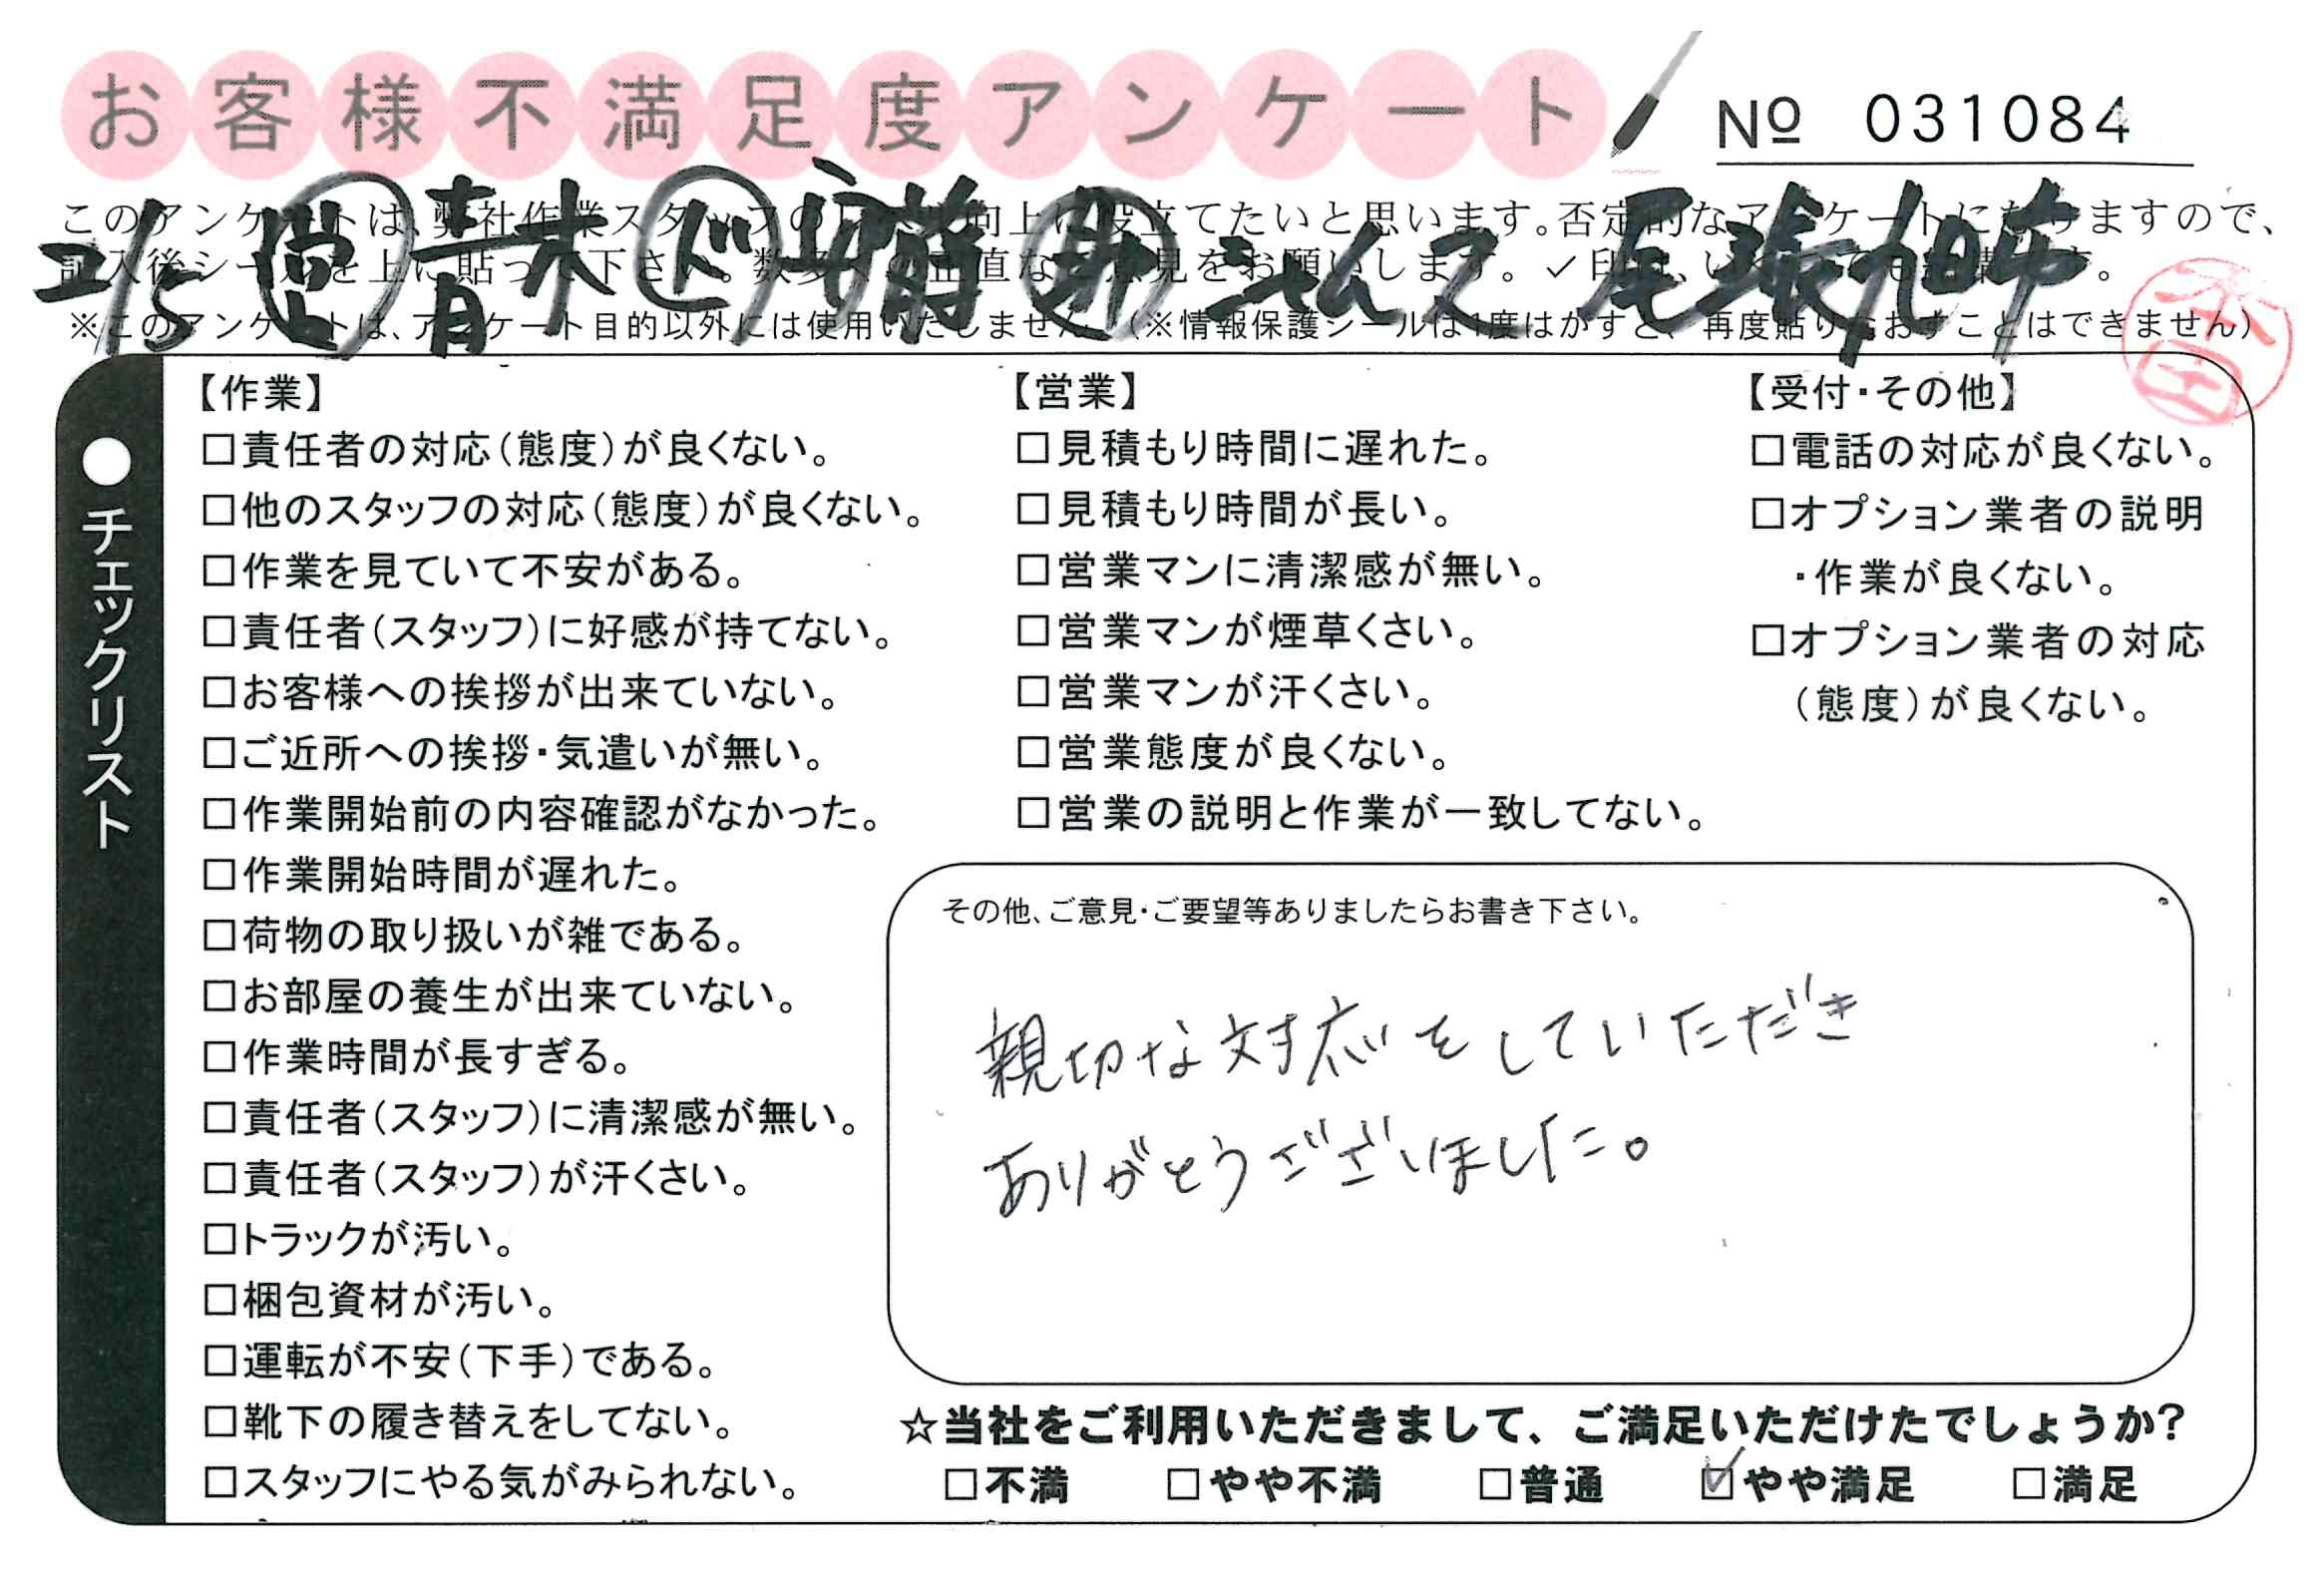 お客様不満足度アンケート
No 031084
2/5 営 青木 ド 安藤 助 シャムス 尾張旭市
このアンケートは、弊社作業スタッフの 向上に役立てたいと思います。否定的なアンケートになりますので、
記入後シールを上に貼って下さい。数多くの正直なご意見をお願いします。✓印は、いくつでも結構です。
※このアンケートは、アンケート目的以外には使用いたしません。(※情報保護シールは1度はがすと、再度貼りなおすことはできません)
●チェックリスト
【作業】
□責任者の対応(態度)が良くない。
□他のスタッフの対応(態度)が良くない。
□作業を見ていて不安がある。
□責任者(スタッフ)に好感が持てない。
□お客様への挨拶が出来ていない。
□ご近所への挨拶・気遣いが無い。
□作業開始前の内容確認がなかった。
□作業開始時間が遅れた。
□荷物の取り扱いが雑である。
□お部屋の養生が出来ていない。
□作業時間が長すぎる。
□責任者(スタッフ)に清潔感が無い。
□責任者(スタッフ)が汗くさい。
□トラックが汚い。
□梱包資材が汚い。
□運転が不安(下手)である。
□靴下の履き替えをしてない。
□スタッフにやる気がみられない。
【営業】
□見積もり時間に遅れた。
□見積もり時間が長い。
□営業マンに清潔感が無い。
□営業マンが煙草くさい。
□営業マンが汗くさい。
□営業態度が良くない。
□営業の説明と作業が一致してない。
【受付・その他】
□電話の対応が良くない。
□オプション業者の説明
・作業が良くない。
□オプション業者の対応
(態度)が良くない。
その他、ご意見・ご要望等ありましたらお書き下さい。
親切な対応をしていただき
ありがとうございました。
☆当社をご利用いただきまして、ご満足いただけたでしょうか?
□不満 □やや不満 □普通 ☑やや満足 □満足